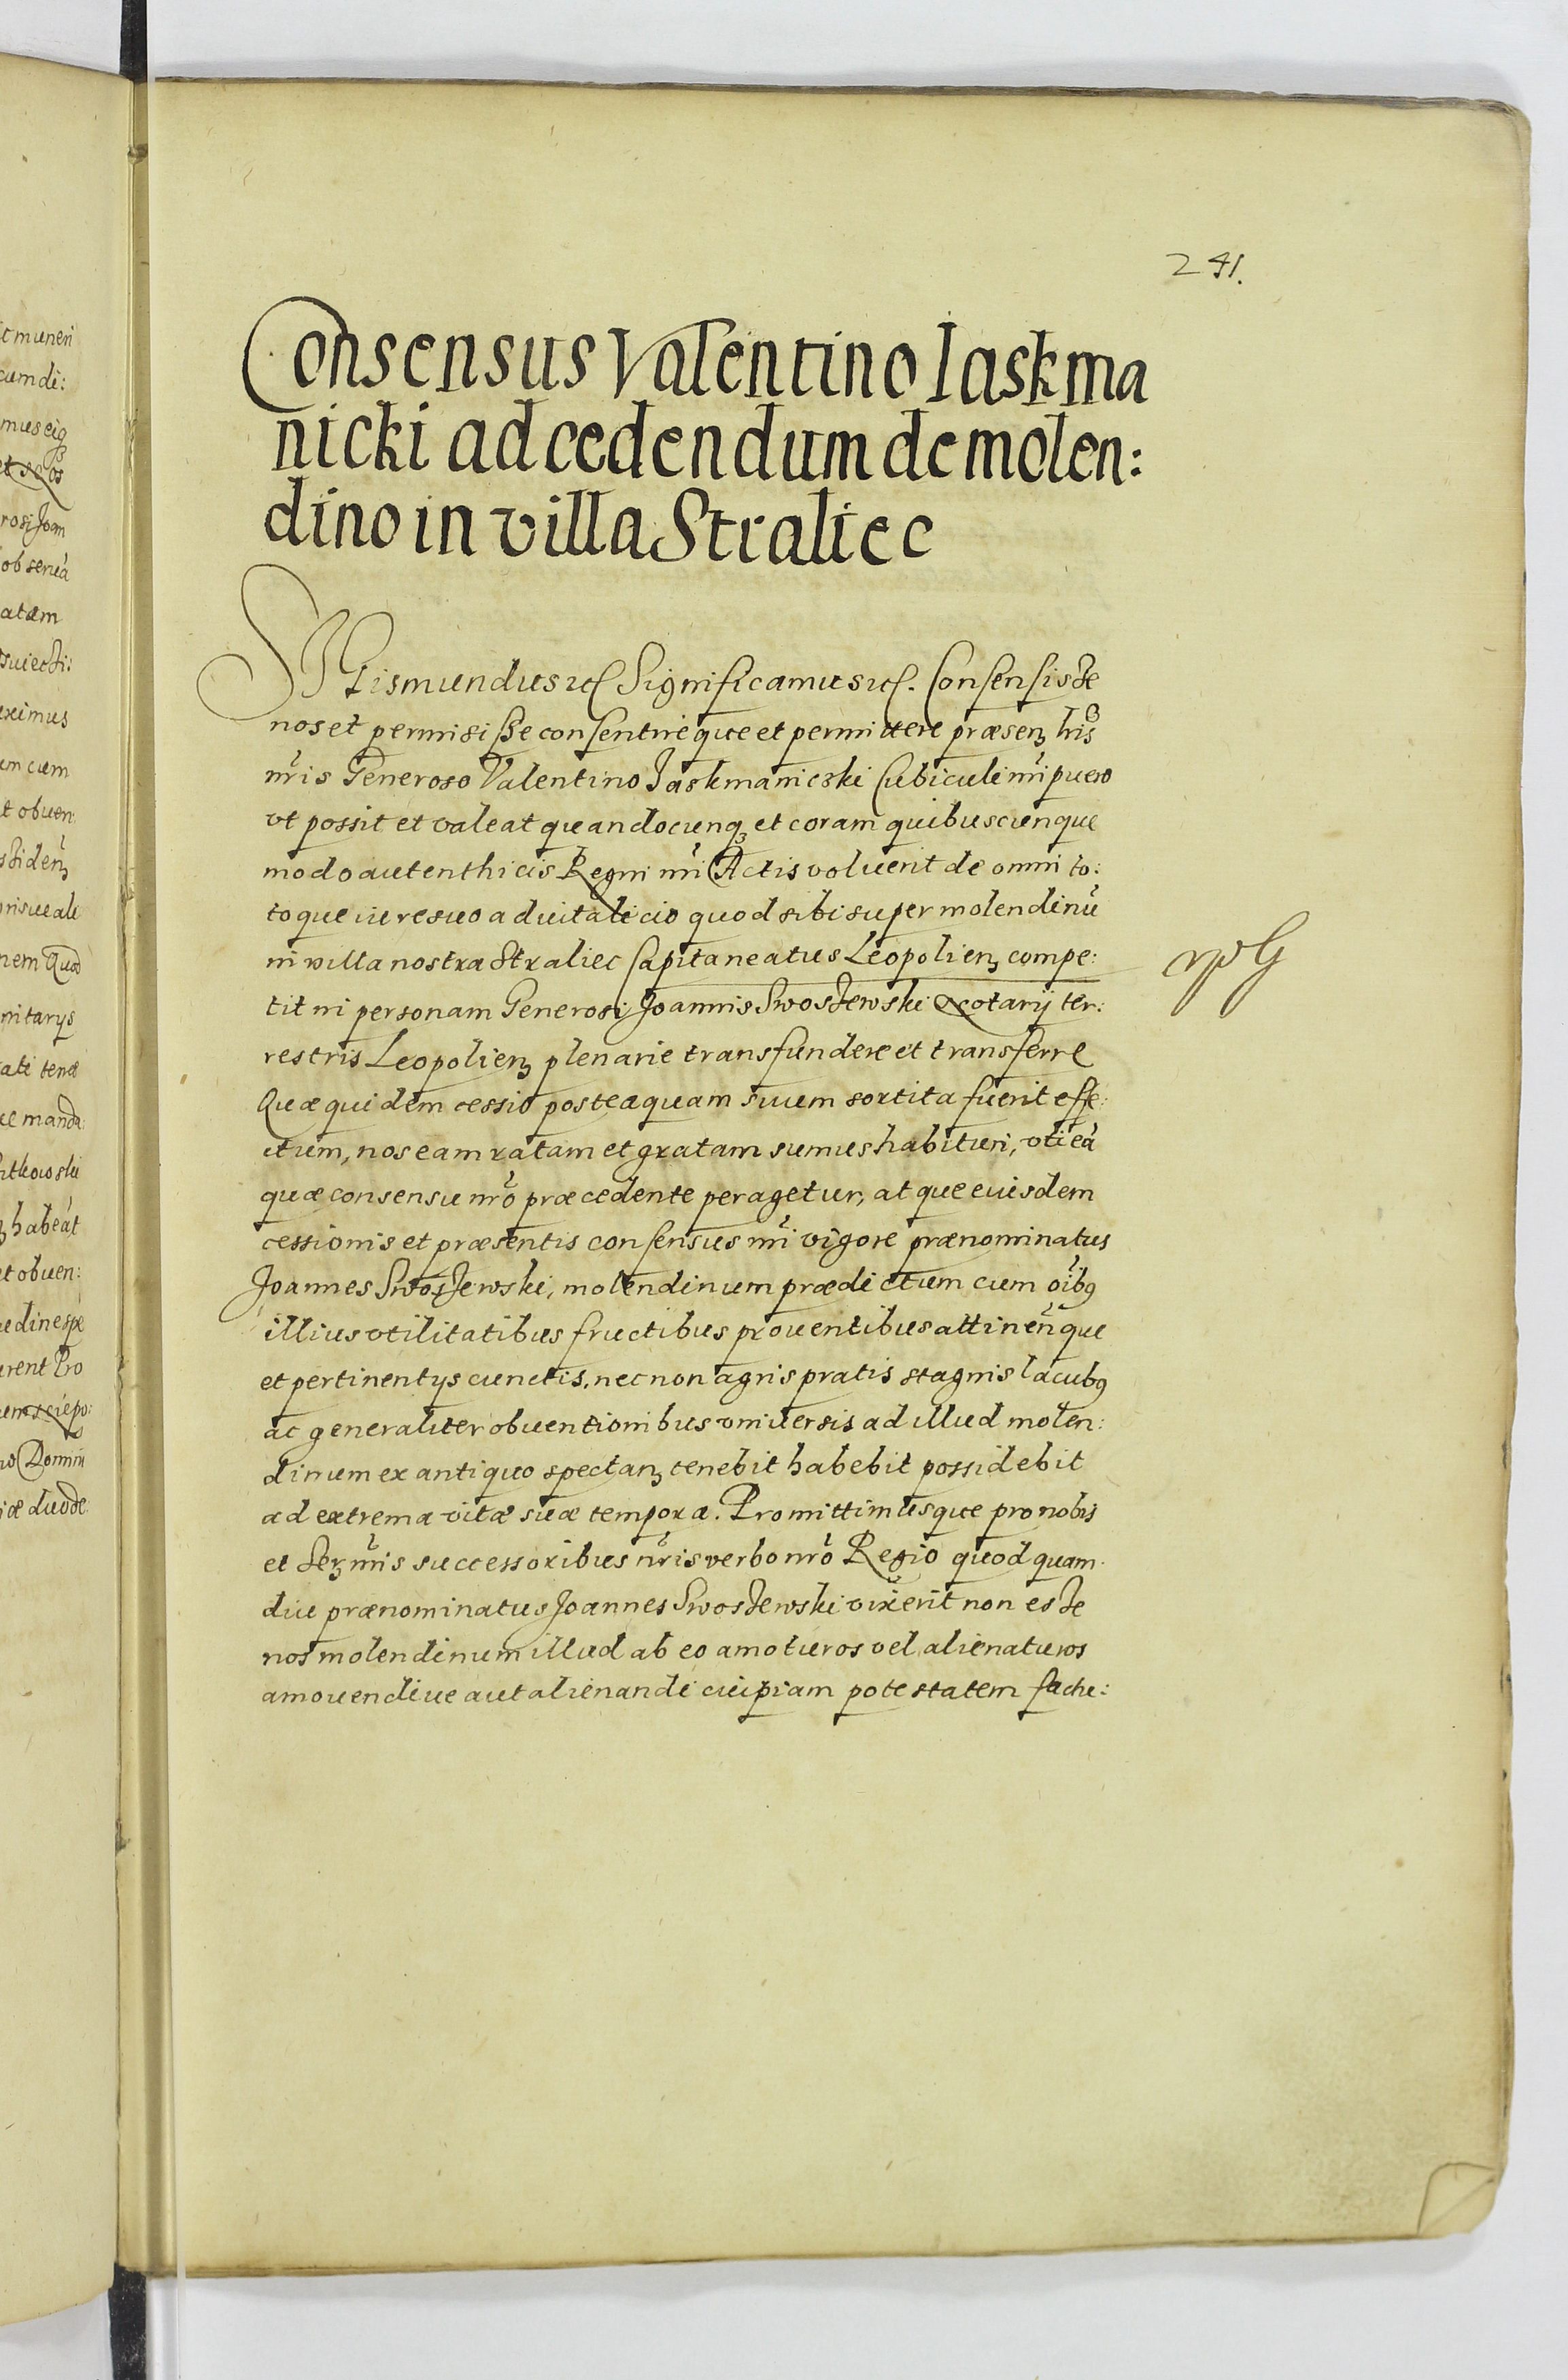 241.
Consensus Valentino Iaskma
nicki ad cedendum de molen:
dino in villa Straliec
Sigismundus etc Significamus etc. Consensisse
nos et permisisse consentireque et permittere præsenz lris
nris Generoso Valentino Jaskmanicski Cubiculi nri puero
vt possit et valeat quandocunq et coram quibuscunque
modo autenthicis Regni nri Actis voluerit de omni to:
toque iure suo aduitalicio quod sibi super molendinu
in villa nostra Straliec Capitaneatus Leopolienz compe:
tit in personam Generosi Joannis Swoszewski Notarij ter:
restris Leopolienz plenarie transfundere et transferre
Quæ quidem cessio posteaquam suum sortita fuerit effe:
ctum, nos eam ratam et gratam sumus habituri, vti ea
quæ consensu nro præcedente peragetur, atque euisdem
cessionis et præsentis consensus nri vigore prænominatus
Joannes Swoszewski, molendinum prædictum cum oibus
illius vtilitatibus fructibus prouentibus attinenque
et pertinentys cunctis, nec non agris pratis stagnis lacubus
ac generaliter obuentionibus vniuersis ad illud molen:
dinum ex antiquo spectanz tenebit habebit possidebit
ad extrema vitæ suæ tempora. Promittimusque pro nobis
et Serz mis successoribus nris verbo nro Regio quod quam
diu prænominatus Joannes Swoszewski vixerit non esse
nos molendinum illud ab eo amoturos vel alienaturos
amouendiue aut alienandi cuipiam potestatem factu: